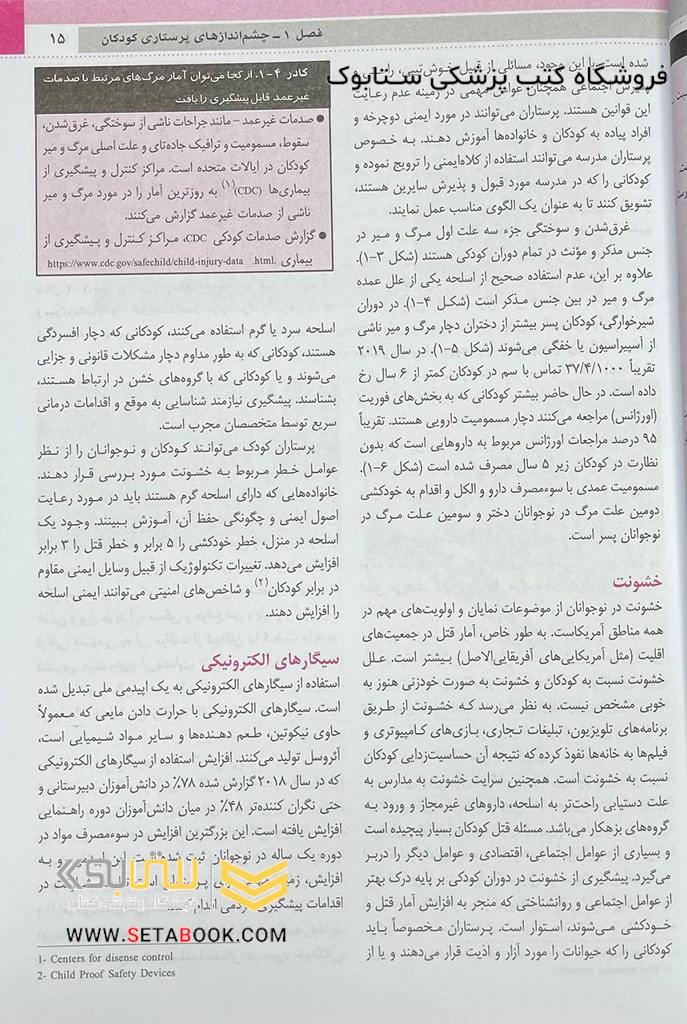 فصل ۱ - چشم‌اندازهای پرستاری کودکان ۱۵
فروشگاه کتب پزشکی ستابوک
شده است. با این وجود، مسائلی از قبیل خوش‌تیپی، راحتی و
پذیرش اجتماعی همچنان عوامل مهمی در زمینه عدم رعایت
این قوانین هستند. پرستاران می‌توانند در مورد ایمنی دوچرخه و
افراد پیاده به کودکان و خانواده‌ها آموزش دهند. به خصوص
پرستاران مدرسه می‌توانند استفاده از کلاه‌ایمنی را ترویج نموده و
کودکانی را که در مدرسه مورد قبول و پذیرش سایرین هستند،
تشویق کنند تا به عنوان یک الگوی مناسب عمل نمایند.
غرق‌شدن و سوختگی جزء سه علت اول مرگ و میر در
جنس مذکر و مؤنث در تمام دوران کودکی هستند (شکل ۳-۱).
علاوه بر این، عدم استفاده صحیح از اسلحه یکی از علل عمده
مرگ و میر در بین جنس مذکر است (شکل ۴-۱). در دوران
شیرخوارگی، کودکان پسر بیشتر از دختران دچار مرگ و میر ناشی
از آسپیراسیون یا خفگی می‌شوند (شکل ۵-۱). در سال ۲۰۱۹
تقریباً ۳۷/۴/۱۰۰۰ تماس با سم در کودکان کمتر از ۶ سال رخ
داده است. در حال حاضر بیشتر کودکانی که به بخش‌های فوریت
(اورژانس) مراجعه می‌کنند دچار مسمومیت دارویی هستند. تقریباً
۹۵ درصد مراجعات اورژانس مربوط به داروهایی است که بدون
نظارت در کودکان زیر ۵ سال مصرف شده است (شکل ۶-۱).
مسمومیت عمدی با سوءمصرف دارو و الکل و اقدام به خودکشی
دومین علت مرگ در نوجوانان دختر و سومین علت مرگ در
نوجوانان پسر است.
خشونت
خشونت در نوجوانان از موضوعات نمایان و اولویت‌های مهم در
همه مناطق آمریکاست. به طور خاص، آمار قتل در جمعیت‌های
اقلیت (مثل آمریکایی‌های آفریقایی‌الاصل) بیشتر است. علل
خشونت نسبت به کودکان و خشونت به صورت خودزنی هنوز به
خوبی مشخص نیست. به نظر می‌رسد که خشونت از طریق
برنامه‌های تلویزیون، تبلیغات تجاری، بازی‌های کامپیوتری و
فیلم‌ها به خانه‌ها نفوذ کرده که نتیجه آن حساسیت‌زدایی کودکان
نسبت به خشونت است. همچنین سرایت خشونت به مدارس به
علت دستیابی راحت‌تر به اسلحه، داروهای غیرمجاز و ورود به
گروه‌های بزهکار می‌باشد. مسئله قتل کودکان بسیار پیچیده است
و بسیاری از عوامل اجتماعی، اقتصادی و عوامل دیگر را دربر
می‌گیرد. پیشگیری از خشونت در دوران کودکی بر پایه درک بهتر
از عوامل اجتماعی و روانشناختی که منجر به افزایش آمار قتل و
خودکشی می‌شوند، استوار است. پرستاران مخصوصاً باید
کودکانی را که حیوانات را مورد آزار و اذیت قرار می‌دهند و یا از
کادر ۴-۱. از کجا می‌توان آمار مرگ‌های مرتبط با صدمات
غیرعمد قابل پیشگیری را یافت
● صدمات غیرعمد - مانند جراحات ناشی از سوختگی، غرق‌شدن،
سقوط، مسمومیت و ترافیک جاده‌ای و علت اصلی مرگ و میر
کودکان در ایالات متحده است. مراکز کنترل و پیشگیری از
بیماری‌ها (CDC)(۱) به روزترین آمار را در مورد مرگ و میر
ناشی از صدمات غیرعمد گزارش می‌کنند.
● گزارش صدمات کودکی CDC، مراکز کنترل و پیشگیری از
بیماری https://www.cdc.gov/safechild/child-injury-data .html.
اسلحه سرد یا گرم استفاده می‌کنند، کودکانی که دچار افسردگی
هستند، کودکانی که به طور مداوم دچار مشکلات قانونی و جزایی
می‌شوند و یا کودکانی که با گروه‌های خشن در ارتباط هستند،
بشناسند. پیشگیری نیازمند شناسایی به موقع و اقدامات درمانی
سریع توسط متخصصان مجرب است.
پرستاران کودک می‌توانند کودکان و نوجوانان را از نظر
عوامل خطر مربوط به خشونت مورد بررسی قرار دهند.
خانواده‌هایی که دارای اسلحه گرم هستند باید در مورد رعایت
اصول ایمنی و چگونگی حفظ آن، آموزش ببینند. وجود یک
اسلحه در منزل، خطر خودکشی را ۵ برابر و خطر قتل را ۳ برابر
افزایش می‌دهد. تغییرات تکنولوژیک از قبیل وسایل ایمنی مقاوم
در برابر کودکان(۲) و شاخص‌های امنیتی می‌توانند ایمنی اسلحه
را افزایش دهند.
سیگارهای الکترونیکی
استفاده از سیگارهای الکترونیکی به یک اپیدمی ملی تبدیل شده
است. سیگارهای الکترونیکی با حرارت دادن مایعی که معمولاً
حاوی نیکوتین، طعم دهنده‌ها و سایر مواد شیمیایی است،
آئروسل تولید می‌کنند. افزایش استفاده از سیگارهای الکترونیکی
که در سال ۲۰۱۸ گزارش شده ۷۸٪ در دانش‌آموزان دبیرستانی و
حتی نگران کننده‌تر ۴۸٪ در میان دانش‌آموزان دوره راهنمایی
افزایش یافته است. این بزرگترین افزایش در سوءمصرف مواد در
دوره یک ساله در نوجوانان ثبت شده است. این
به
افزایش،
در
اقدامات پیشگیری
ستابوک
فروشگاه اینترنتی کتاب
WWW.SETABOOK.COM
1- Centers for disense control
2- Child Proof Safety Devices